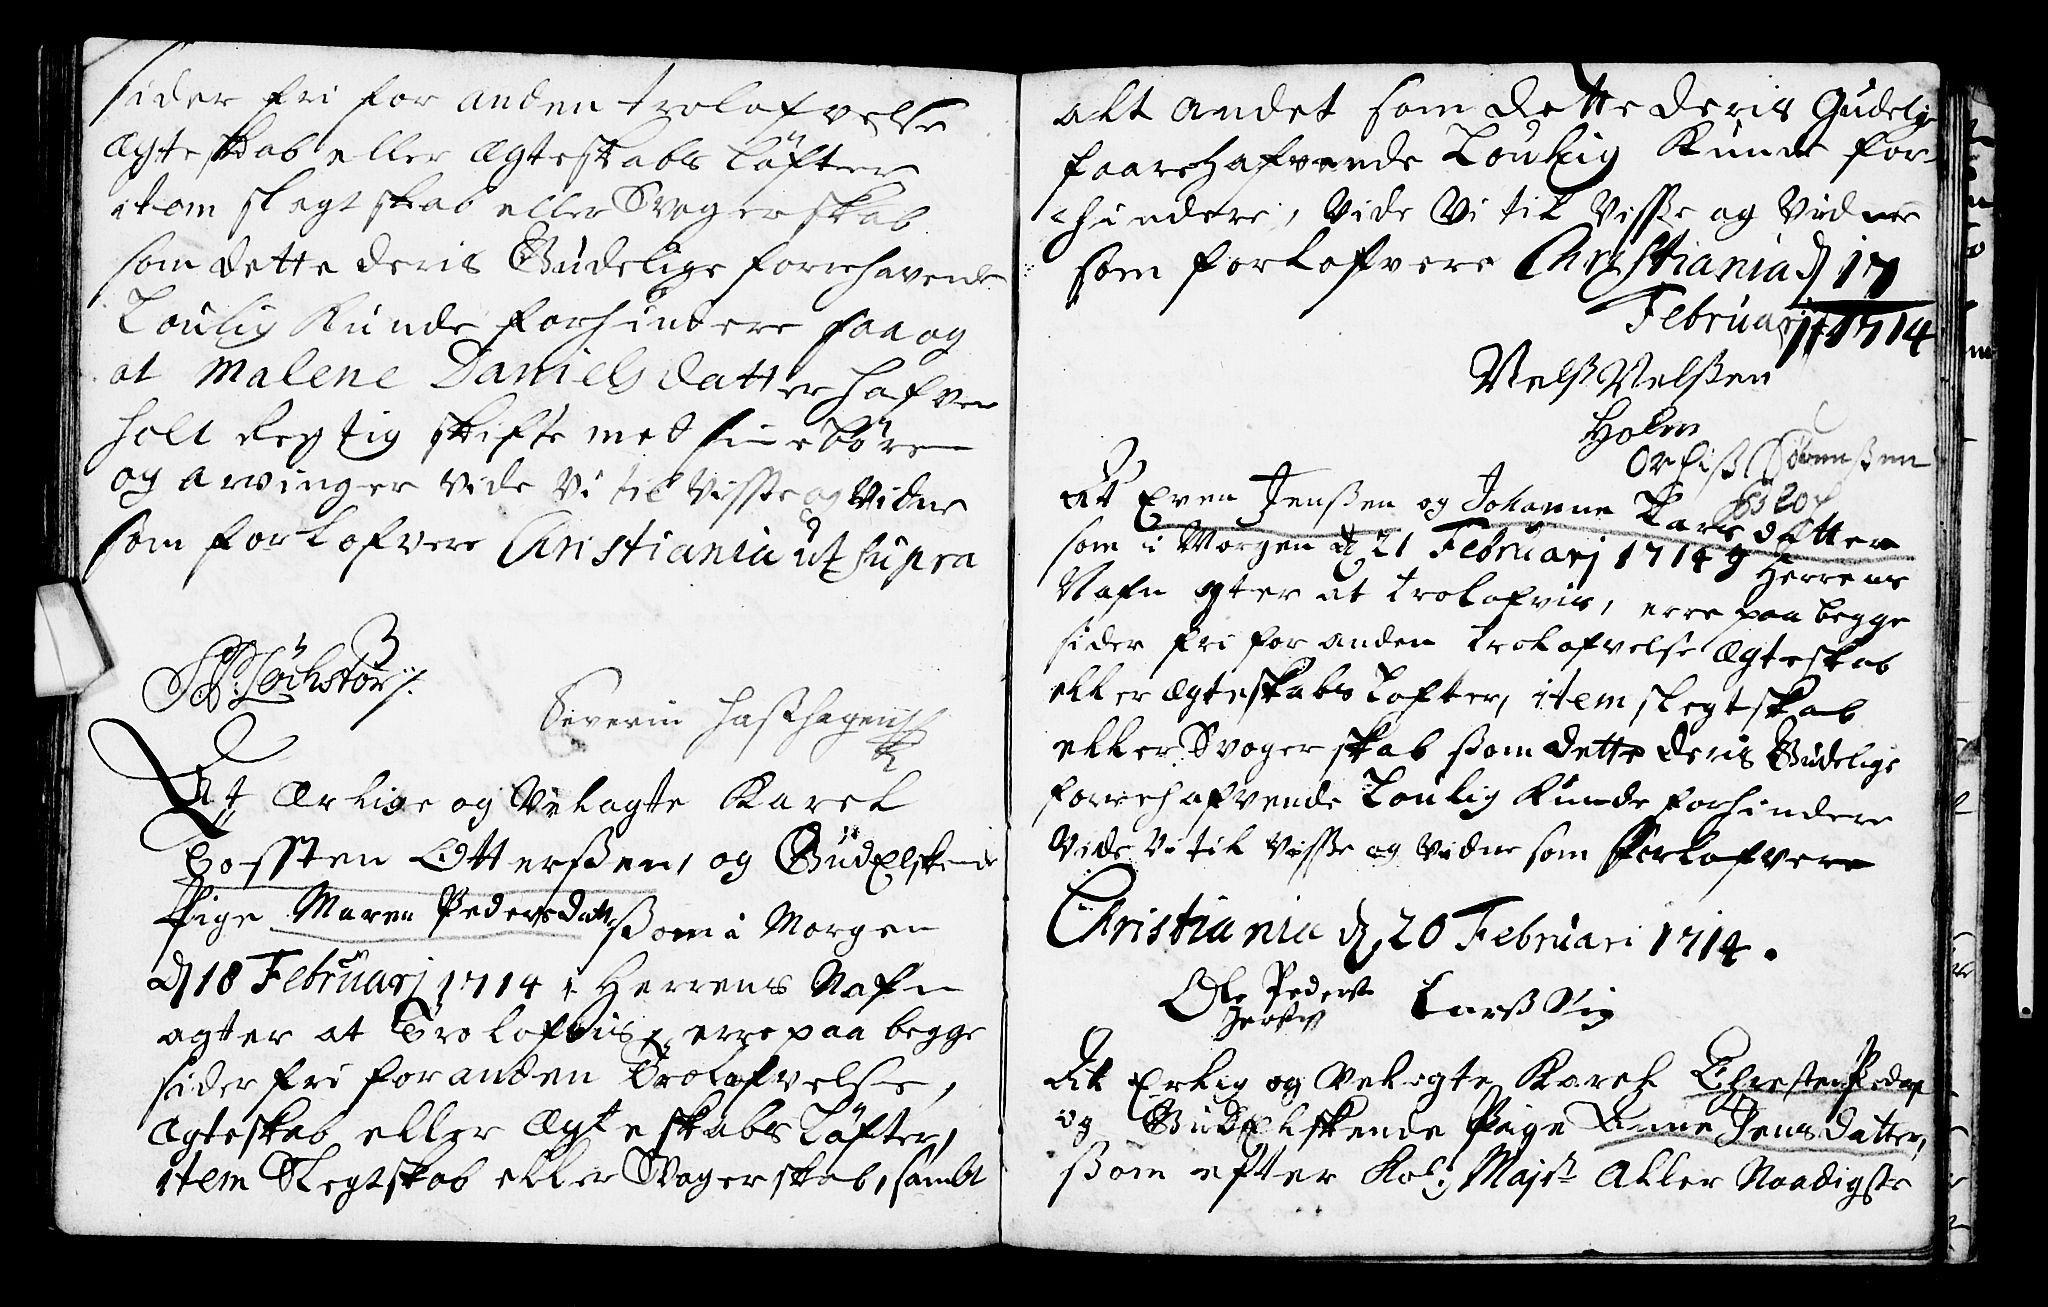 sider fri for anden trolofvelse
ægteskab eller ægteskabs Löfter
item slegtskab eller Svogerskab
som dette deris Gudelige forrehavende
Loulig Kunde forhindere saa og
at Malene Daniels datter hafver
holt Regtig skifte med sine börn
og arvinger vide vi til visse og vidne
som forlofvere Christiania ut supra
Severin Hasshagen
At Ærlige og Velagte Karel
Torsten Otterßen, og GudElskende
Pige Maren Pedersdatt ßom i Morgen
d 18 Februarj 1714 i Herrens Nafn
agter at Trolofvis, erre paa begge
sider fri for anden Trolofvelse,
Ægteskab eller Ægteskabs Löfter,
item Slegtskab eller Svogerskab, samt
alt andet som dette deris Gudelige
faarehafvende Loulig Kunde for-
hindere, vide vi til visse og vidne
som forlofvere Christiania d 17
Februarij 1714
Nelß Nelßen
Holm
Sörenßen
At Even Jenßen og Johanne Lars datter
som i Morgen d 21 Februarj 1714 j Herrens
Nafn agter at trolofvis, erre paa begge
sider fri for anden trolofvelse Ægteskab
eller ægteskabs Lofter, item slegtskab
eller Svogerskab ßom dette deris Gudelige
forrehafvende Loulig Kunde forhindere
vide vi til visse og vidne som forlofvere
Christiania d, 20 Februari 1714.
Ole Peders Larß Sig
At Erlig og Velagte Karel Christen Peders
og GudElskende Pige Anne Jens datter,
ßom efter Kol: Majst Aller Naadigste